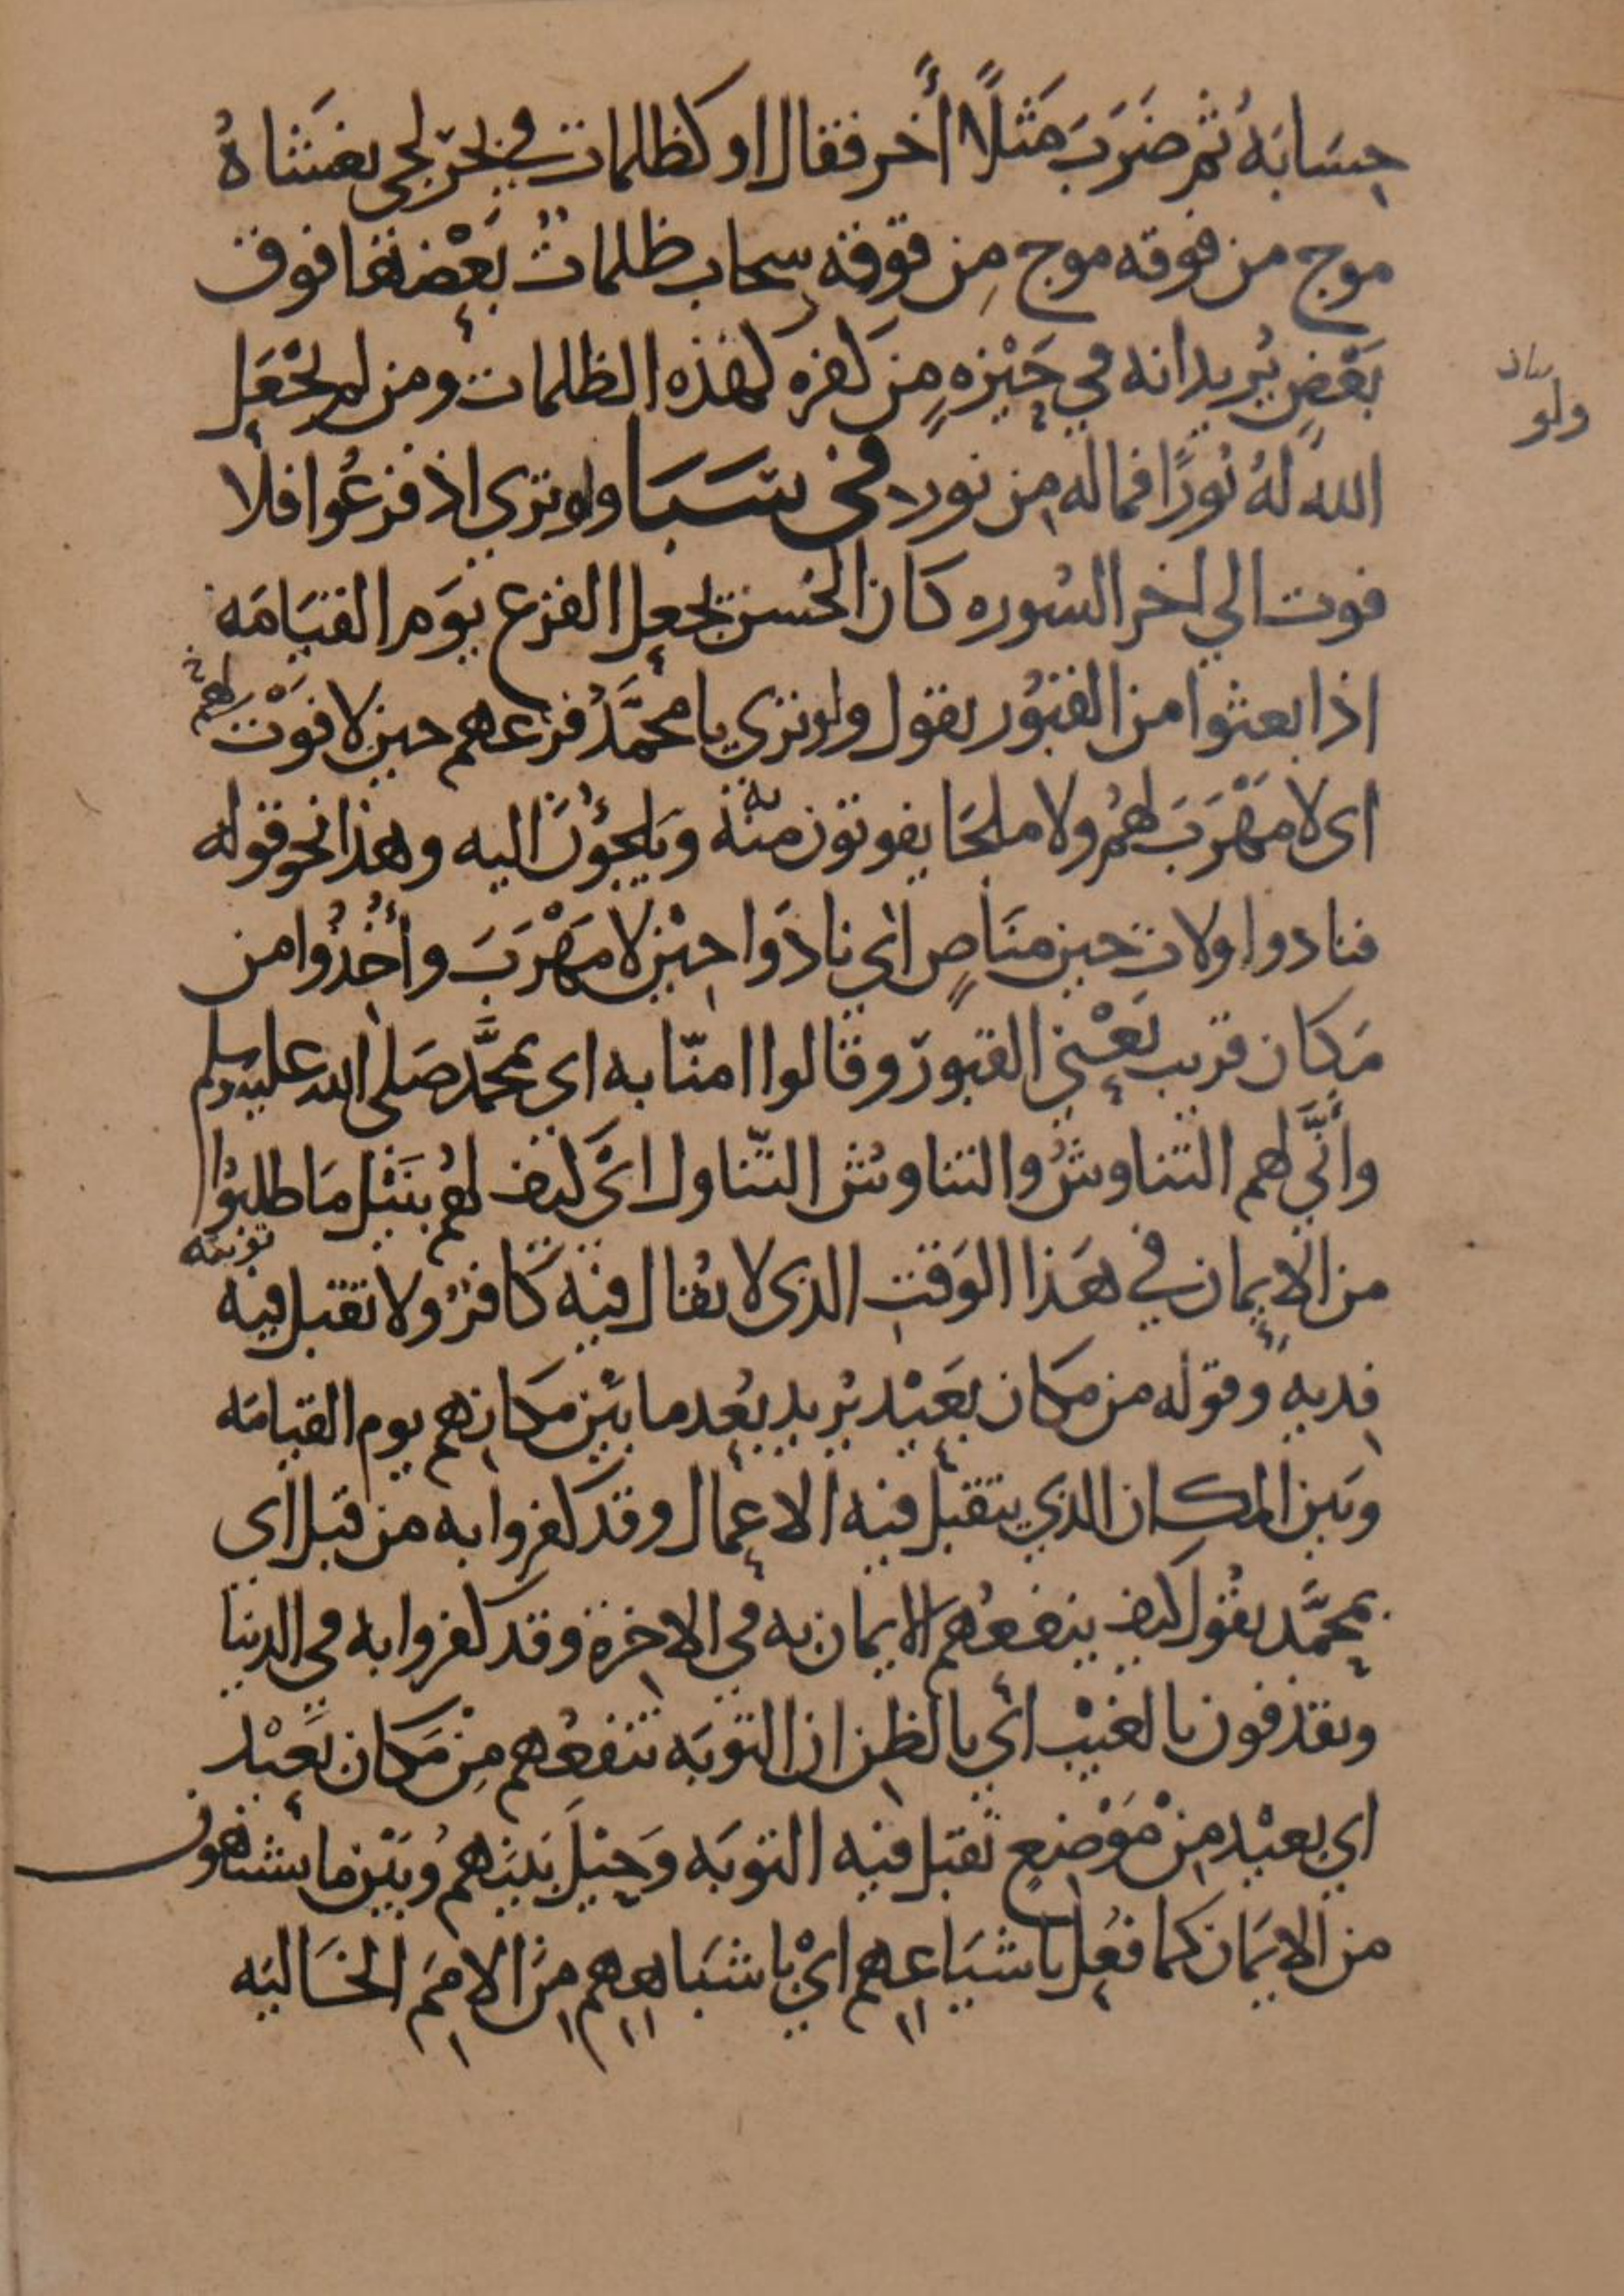 حِسَابَهُ ثم ضَرَبَ مَثلًا أخر فقال او كظلمات في بحر لجي يغشاهُ
موج من فوقه موج مِن فوقه سحاب ظلماتٌ بَعْضها فوق
بَعْضٍ يُريد انه في حَيْره من كفره كهذه الظلمات ومن لم يجْعَل
الله لهُ نُورًا فما له من نور في سَبَا ولو تري اذ فزعُوا فلا
فوت الي اخر السُوره كان الحَسن يجعل الفزع يَوم القيَامَه
اذا بعثوا من القبُور يقول ولو تري يا محمَّدُ فزعهم حين لا فوْت لهم
اى لا مَهْرَبَ لهُم ولا ملجَا يفوتون به منه ويَلجؤُنَ اليه وهذا نحو قوله
فنادوا ولات حين مَنَاصٍ اي نادَوا حِيْن لا مَهْرَبَ وأُخِذُوا من
مَكان قريب يَعْني القبور وقالوا امنّا به اي بمحمَّد صَلى الله عليه وسلم
وأنَّي لهم التناوشُ والتناوُش التّناول ايْ كيف لهُم بنَيْل مَا طلبُوا
من الايمان في هَذا الوَقتِ الذى لا يُقال فيه كافرٌ ولا تقبل فيه توبته
فِديه وقوله من مكان بَعَيْد يُريد بُعد ما بيْن مكانِهم يوم القيامَه
وَبَين المكان الذي يتقبل فيه الاعمال وقد كفروا به من قبل اى
بمحمَّد يقُول كيف ينفعُهم الايمان به في الاخِرة وقد كفروا به في الدنيا
ويقذفون بالغيْب اي بالظن ان التوبَه تنفعُهم مِنْ مَكان بَعيْد
اي بعيْد مِنْ مَوْضِع تُقبل فيه التوبَه وَحِيْلَ بَينَهم وَبَيْن ما يشتهون
من الايمَان كما فُعِل باشيَاعِهم ايْ باشبَاهِهِم مِنَ الامَم الخَاليَه